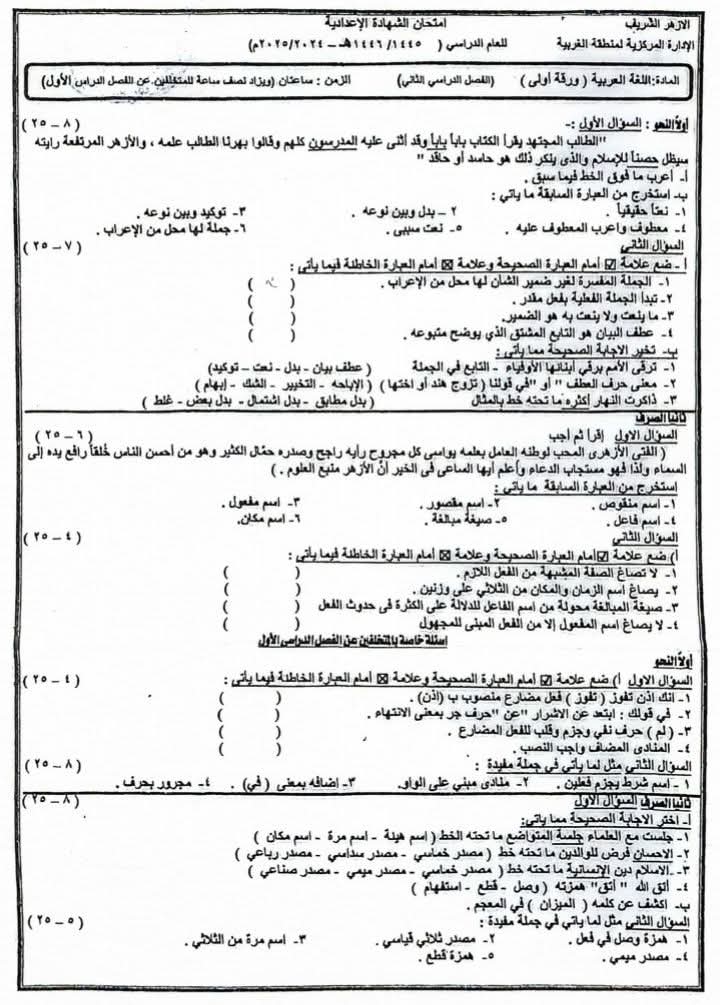 الازهر الشريف امتحان الشهادة الإعدادية
الإدارة المركزية لمنطقة الغربية للعام الدراسي ( ١٤٤٥/ ١٤٤٦هـ – ٢٠٢٤/ ٢٠٢٥م)
المادة:اللغة العربية ( ورقة أولى ) (الفصل الدراسي الثاني) الزمن : ساعتان (ويزاد نصف ساعة للمتخلفين عن الفصل الدراس الأول)
أولاً النحو : السؤال الأول :- ( ٨ – ٢٥ )
"الطالب المجتهد يقرأ الكتاب باباً باباً وقد أثنى عليه المدرسون كلهم وقالوا بهرنا الطالب علمه ، والأزهر المرتفعة رايته
سيظل حصناً للإسلام والذى ينكر ذلك هو حاسد أو حاقد "
أ- أعرب ما فوق الخط فيما سبق .
ب- استخرج من العبارة السابقة ما ياتي :
١- نعتاً حقيقياً . ٢ – بدل وبين نوعه . ٣- توكيد وبين نوعه .
٤- معطوف واعرب المعطوف عليه . ٥- نعت سببى . ٦- جملة لها محل من الإعراب .
السؤال الثاني ( ٧ – ٢٥ )
أ - ضع علامة ☑ أمام العبارة الصحيحة وعلامة ☒ أمام العبارة الخاطئة فيما يأتى :
١- الجملة المفسرة لغير ضمير الشأن لها محل من الإعراب . ( )
٢- تبدأ الجملة الفعلية بفعل مقدر . ( )
٣- ما ينعت ولا ينعت به هو الضمير. ( )
٤- عطف البيان هو التابع المشتق الذي يوضح متبوعه . ( )
ب- تخير الاجابة الصحيحة مما يأتى :
١- ترقى الأمم برقي أبنائها الأوفياء - التابع في الجملة ( عطف بيان – بدل – نعت – توكيد)
٢- معنى حرف العطف " أو "في قولنا ( تزوج هند أو اختها ) ( الإباحه – التخيير – الشك – إبهام )
٣- ذاكرت النهار أكثره ما تحته خط بالمثال ( بدل مطابق – بدل اشتمال – بدل بعض – غلط )
ثانيا الصرف
السؤال الاول إقرأ ثم أجب ( ٦ – ٢٥ )
( الفتى الأزهرى المحب لوطنه العامل بعلمه يواسى كل مجروح رأيه راجح وصدره حمّال الكثير وهو من أحسن الناس خُلقاً رافع يده إلى
السماء ولذا فهو مستجاب الدعاء وأعلم أيها الساعى فى الخير أنّ الأزهر منبع العلوم . )
إستخرج من العبارة السابقة ما يأتي :
١- اسم منقوص . ٢- اسم مقصور . ٣- اسم مفعول .
٤- اسم فاعل . ٥- صيغة مبالغة . ٦- اسم مكان.
السؤال الثاني ( ٤ – ٢٥ )
أ) ضع علامة ☑أمام العبارة الصحيحة وعلامة ☒ أمام العبارة الخاطئة فيما يأتى :
١- لا تصاغ الصفة المشبهة من الفعل اللازم . ( )
٢- يصاغ اسم الزمان والمكان من الثلاثي على وزنين . ( )
٣- صيغة المبالغة محولة من اسم الفاعل للدلالة على الكثرة فى حدوث الفعل ( )
٤- لا يصاغ اسم المفعول إلا من الفعل المبنى للمجهول ( )
اسئلة خاصة بالمتخلفين عن الفصل الدراسى الأول
أولاً النحو
السؤال الاول أ) ضع علامة ☑ أمام العبارة الصحيحة وعلامة ☒ أمام العبارة الخاطئة فيما يأتى : ( ٤ – ٢٥ )
١- انك إذن تفوز ( تفوز ) فعل مضارع منصوب ب (إذن) . ( )
٢- في قولك : ابتعد عن الاشرار "عن "حرف جر بمعنى الانتهاء . ( )
٣- ( لم ) حرف نفي وجزم وقلب للفعل المضارع . ( )
٤- المنادى المضاف واجب النصب . ( )
السؤال الثاني مثل لما يأتي في جملة مفيدة : ( ٨ – ٢٥ )
١- اسم شرط يجزم فعلين . ٢- منادى مبنى على الواو. ٣- إضافه بمعنى ( في) . ٤- مجرور بحرف.
ثانيا الصرف السؤال الأول ( ٨ – ٢٥ )
أ- اختر الاجابة الصحيحة مما ياتى:
١- جلست مع العلماء جلسة المتواضع ما تحته الخط ( اسم هيئة - اسم مرة - اسم مكان )
٢- الإحسان فرض للوالدين ما تحته خط ( مصدر خماسي – مصدر سداسي - مصدر رباعي )
٣- الاسلام دين الإنسانية ما تحته خط ( مصدر خماسي – مصدر ميمي - مصدر صناعي )
٤- أتق الله " أتق" همزته ( وصل – قطع – استفهام )
ب- اكشف عن كلمه ( الميزان ) في المعجم .
السؤال الثاني مثل لما ياتي في جملة مفيدة : ( ٥ – ٢٥ )
١- همزة وصل في فعل . ٢- مصدر ثلاثي قياسي . ٣- اسم مرة من الثلاثي .
٤- مصدر ميمي . ٥- همزة قطع .